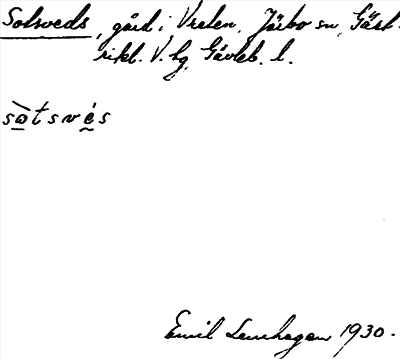 Solsveds, gård i Vreten, Järbo sn, Gäst-
rikl. V. hg Gävleb. l.
sɷ̀tsvés
Emil Lenhagen 1930.